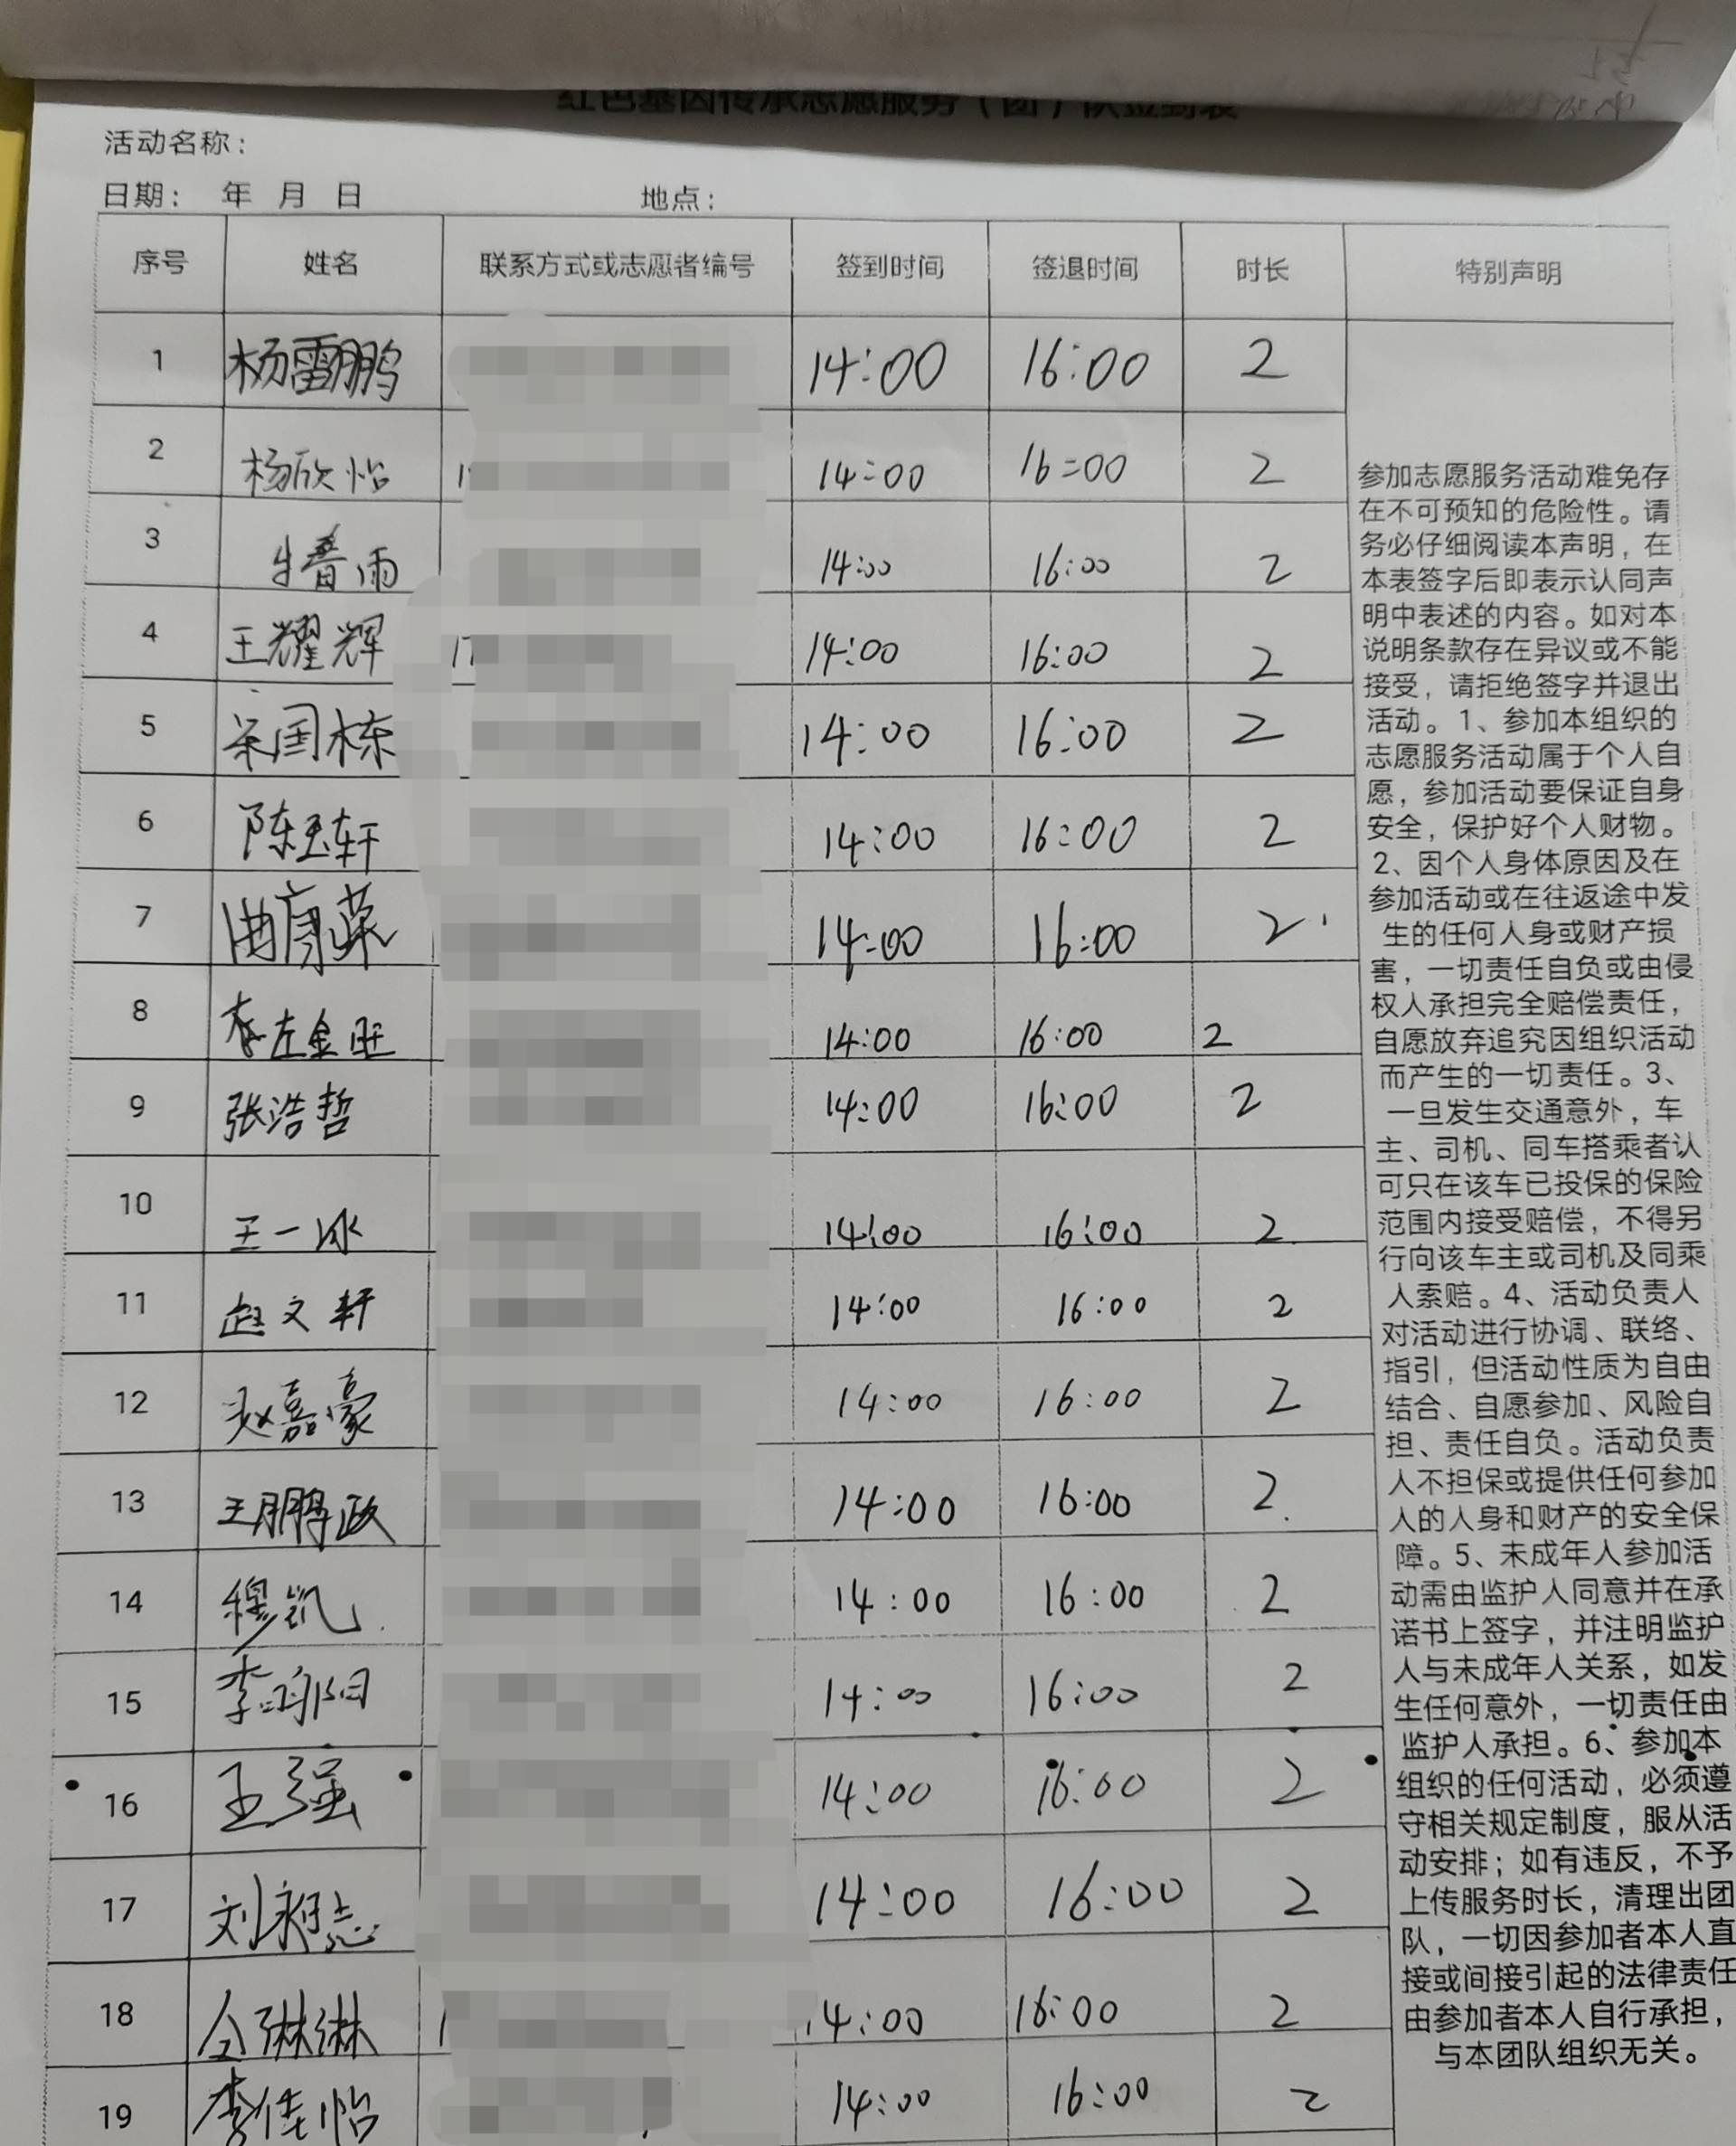 红色基因传承志愿服务（团）队签到表
活动名称：
日期： 年 月 日 地点：
序号 姓名 联系方式或志愿者编号 签到时间 签退时间 时长 特别声明
1 杨雷鹏 14:00 16:00 2
2 杨欣怡 14:00 16:00 2
3 牛春雨 14:00 16:00 2
4 王耀辉 17 14:00 16:00 2
5 宋国栋 14:00 16:00 2
6 陈玉轩 14:00 16:00 2
7 曲康荣 14:00 16:00 2
8 李左金旺 14:00 16:00 2
9 张浩哲 14:00 16:00 2
10 王一冰 14:00 16:00 2
11 赵文轩 14:00 16:00 2
12 赵嘉豪 14:00 16:00 2
13 王鹏政 14:00 16:00 2
14 穆凯 14:00 16:00 2
15 李 阳 14:00 16:00 2
16 王强 14:00 16:00 2
17 刘 志 14:00 16:00 2
18 仝琳淋 14:00 16:00 2
19 李佳怡 14:00 16:00 2
参加志愿服务活动难免存
在不可预知的危险性。请
务必仔细阅读本声明，在
本表签字后即表示认同声
明中表述的内容。如对本
说明条款存在异议或不能
接受，请拒绝签字并退出
活动。1、参加本组织的
志愿服务活动属于个人自
愿，参加活动要保证自身
安全，保护好个人财物。
2、因个人身体原因及在
参加活动或在往返途中发
生的任何人身或财产损
害，一切责任自负或由侵
权人承担完全赔偿责任，
自愿放弃追究因组织活动
而产生的一切责任。3、
一旦发生交通意外，车
主、司机、同车搭乘者认
可只在该车已投保的保险
范围内接受赔偿，不得另
行向该车主或司机及同乘
人索赔。4、活动负责人
对活动进行协调、联络、
指引，但活动性质为自由
结合、自愿参加、风险自
担、责任自负。活动负责
人不担保或提供任何参加
人的人身和财产的安全保
障。5、未成年人参加活
动需由监护人同意并在承
诺书上签字，并注明监护
人与未成年人关系，如发
生任何意外，一切责任由
监护人承担。6、参加本
组织的任何活动，必须遵
守相关规定制度，服从活
动安排；如有违反，不予
上传服务时长，清理出团
队，一切因参加者本人直
接或间接引起的法律责任
由参加者本人自行承担，
与本团队组织无关。